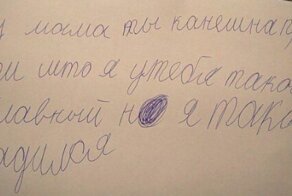 мама ты канешна пр
што я у тебя тако
лавный но я таки
адился